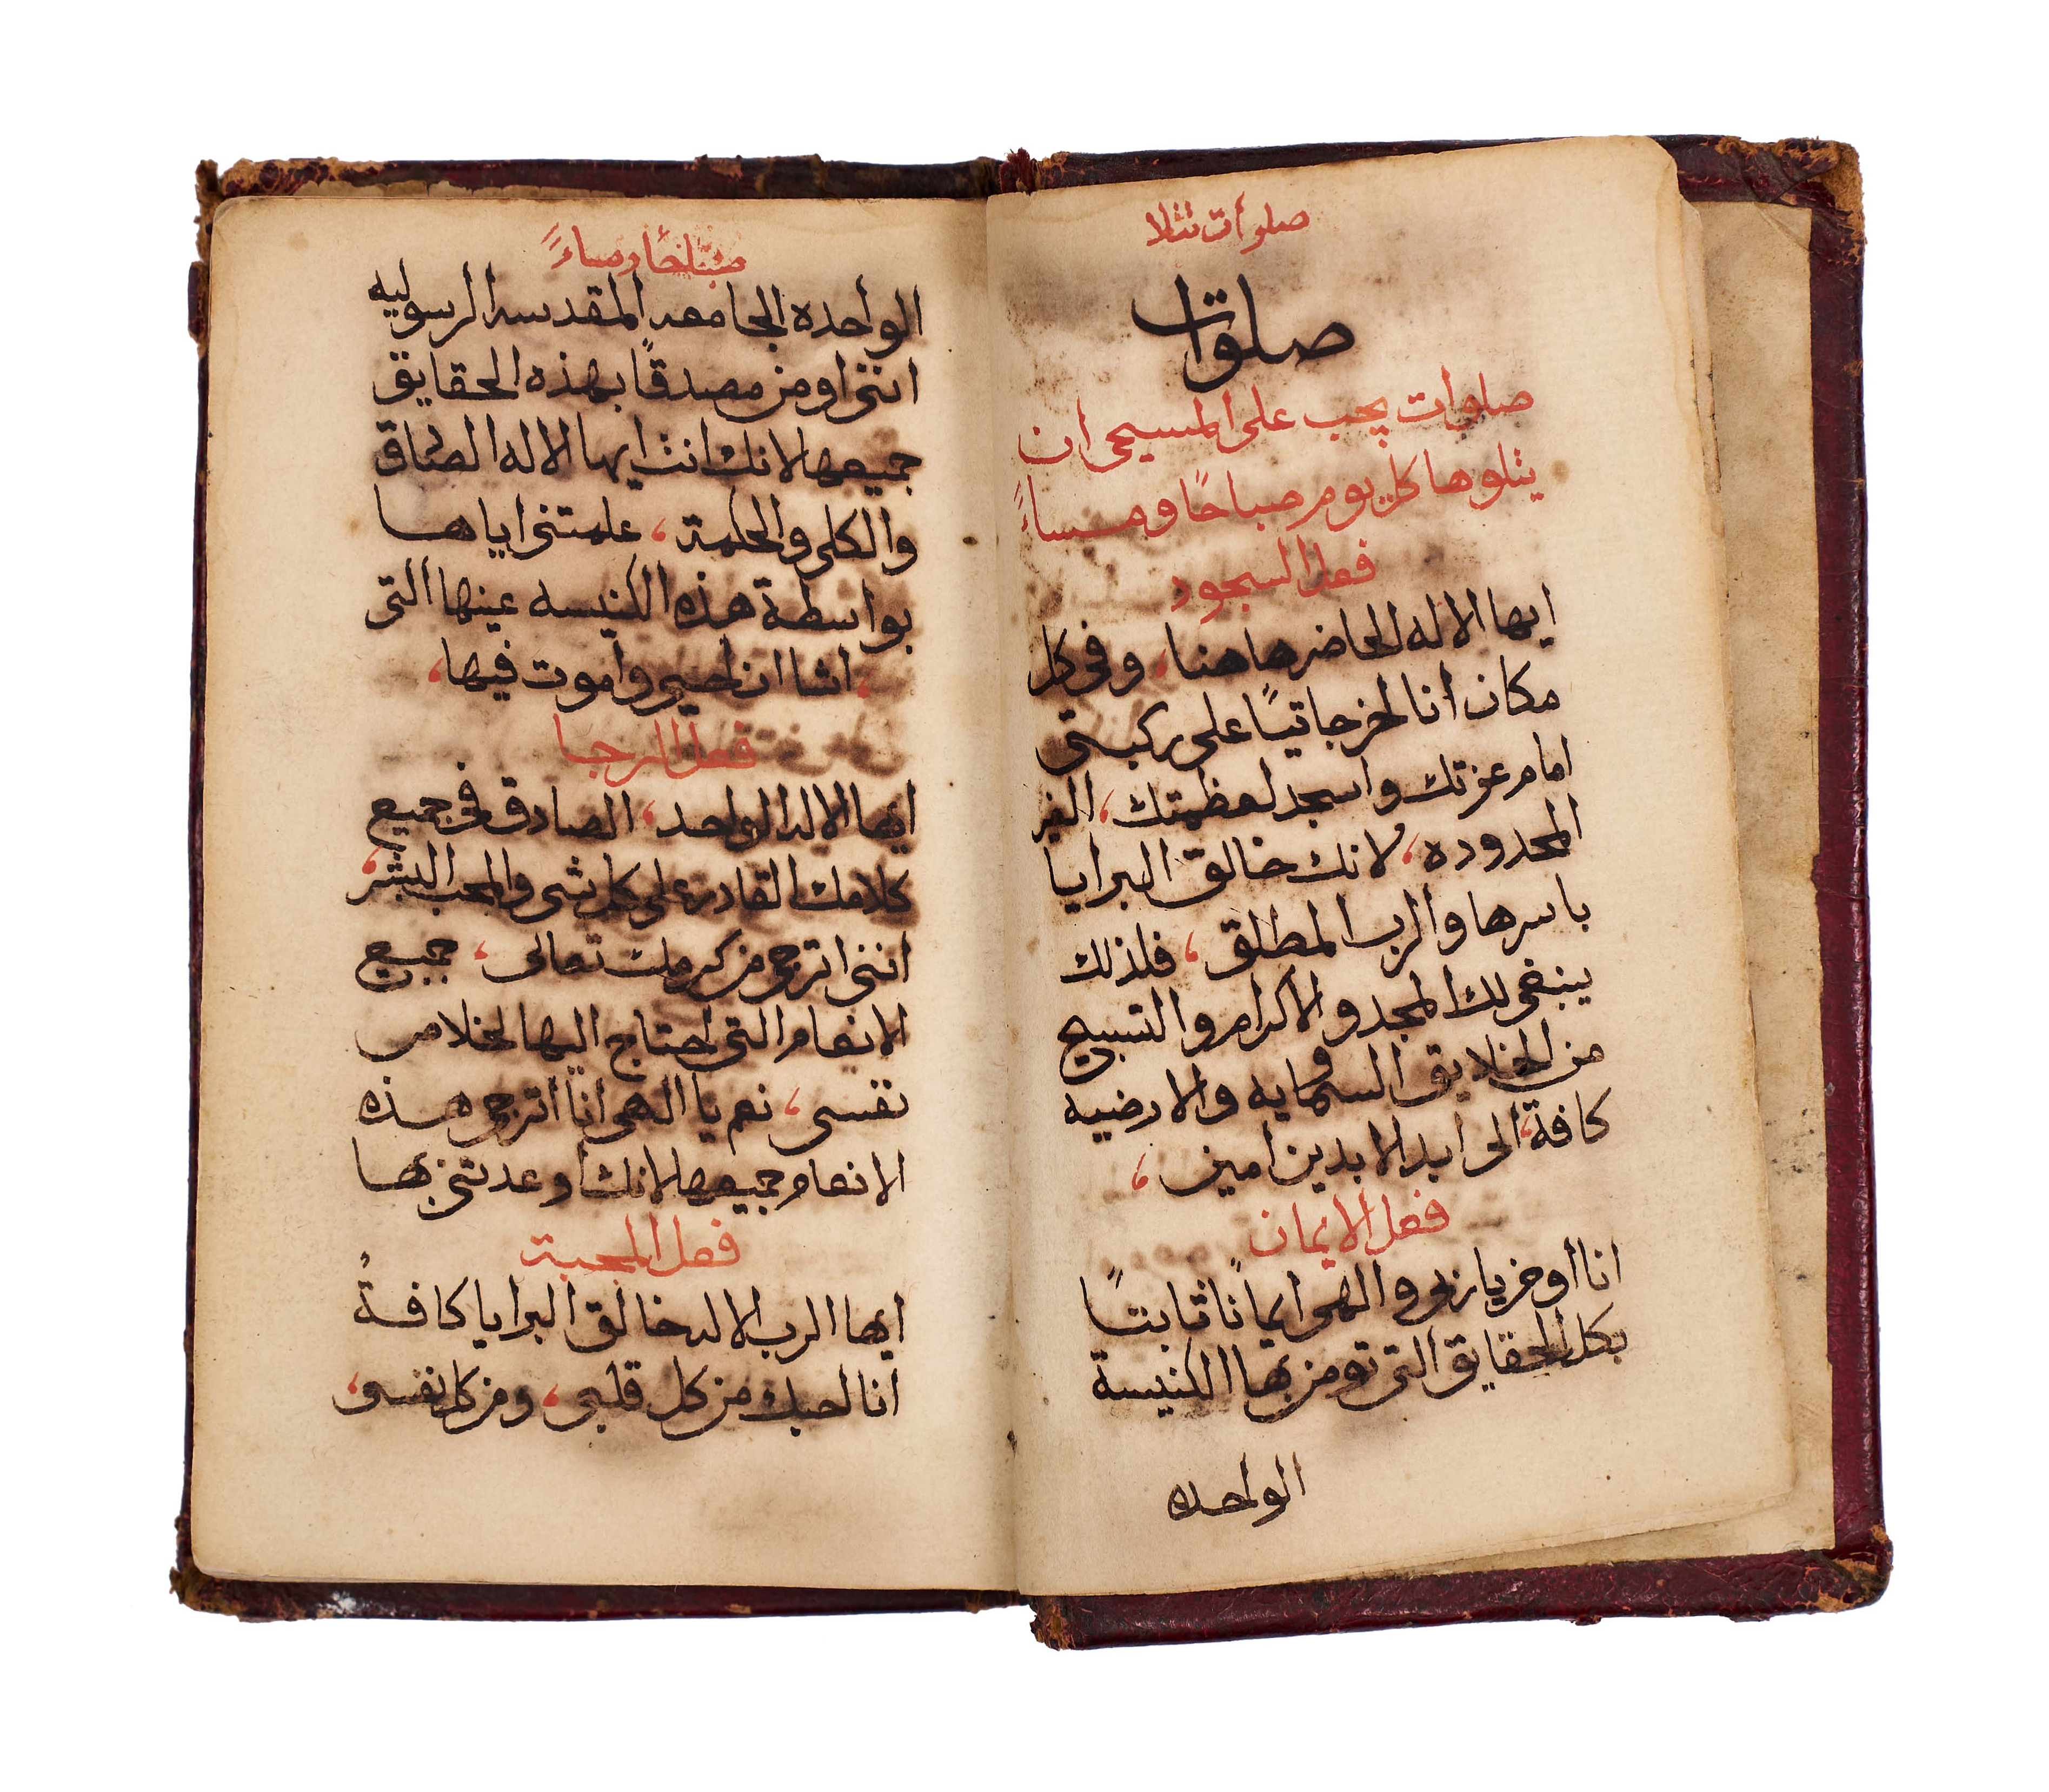 صلوات تتلا
صلوات
صلوات يجب على المسيحي ان
يتلوها كل يوم صباحًا ومساءً
فعل السجود
ايها الاله الحاضر هاهنا، وفي كل
مكان انا اخر جاتيًا على ركبتى
امام عزتك واسجد لعظمتك، الغير
المحدوده، لانك خالق البرايا
باسرها والرب المطلق، فلذلك
ينبغى لك المجد والاكرام والتسبيح
من الخلايق السماويه والارضيه
كافة، الى ابد الابدين امين،
فعل الايمان
انا أومن يا ربى والهى ايمانًا ثابتًا
بكل الحقايق التى تومن بها الكنيسة
الواحده
صباحًا ومساءً
الواحده الجامعه المقدسه الرسوليه
اننى اومن مصدقًا بهذه الحقايق
جميعها لانك انت ايها الاله الصادق
والكلى والحكمة، علمتنى اياها
بواسطة هذه الكنيسه عينها التى
، اشا ان احيى وأموت فيها،
فعل الرجا
ايها الاله الواحد، الصادق فى جميع
كلامك القادر على كل شى والمحب البشر،
اننى اترجى من كرمك تعالى، جميع
الانعام التى احتاج اليها لخلاص
نفسى، نعم يا الهى انا أترجى هذه
الانعام جميعها لانك أوعدتنى بها
فعل المحبة
ايها الرب الاله خالق البرايا كافةً
انا احبك من كل قلبى، ومن كل نفسى،